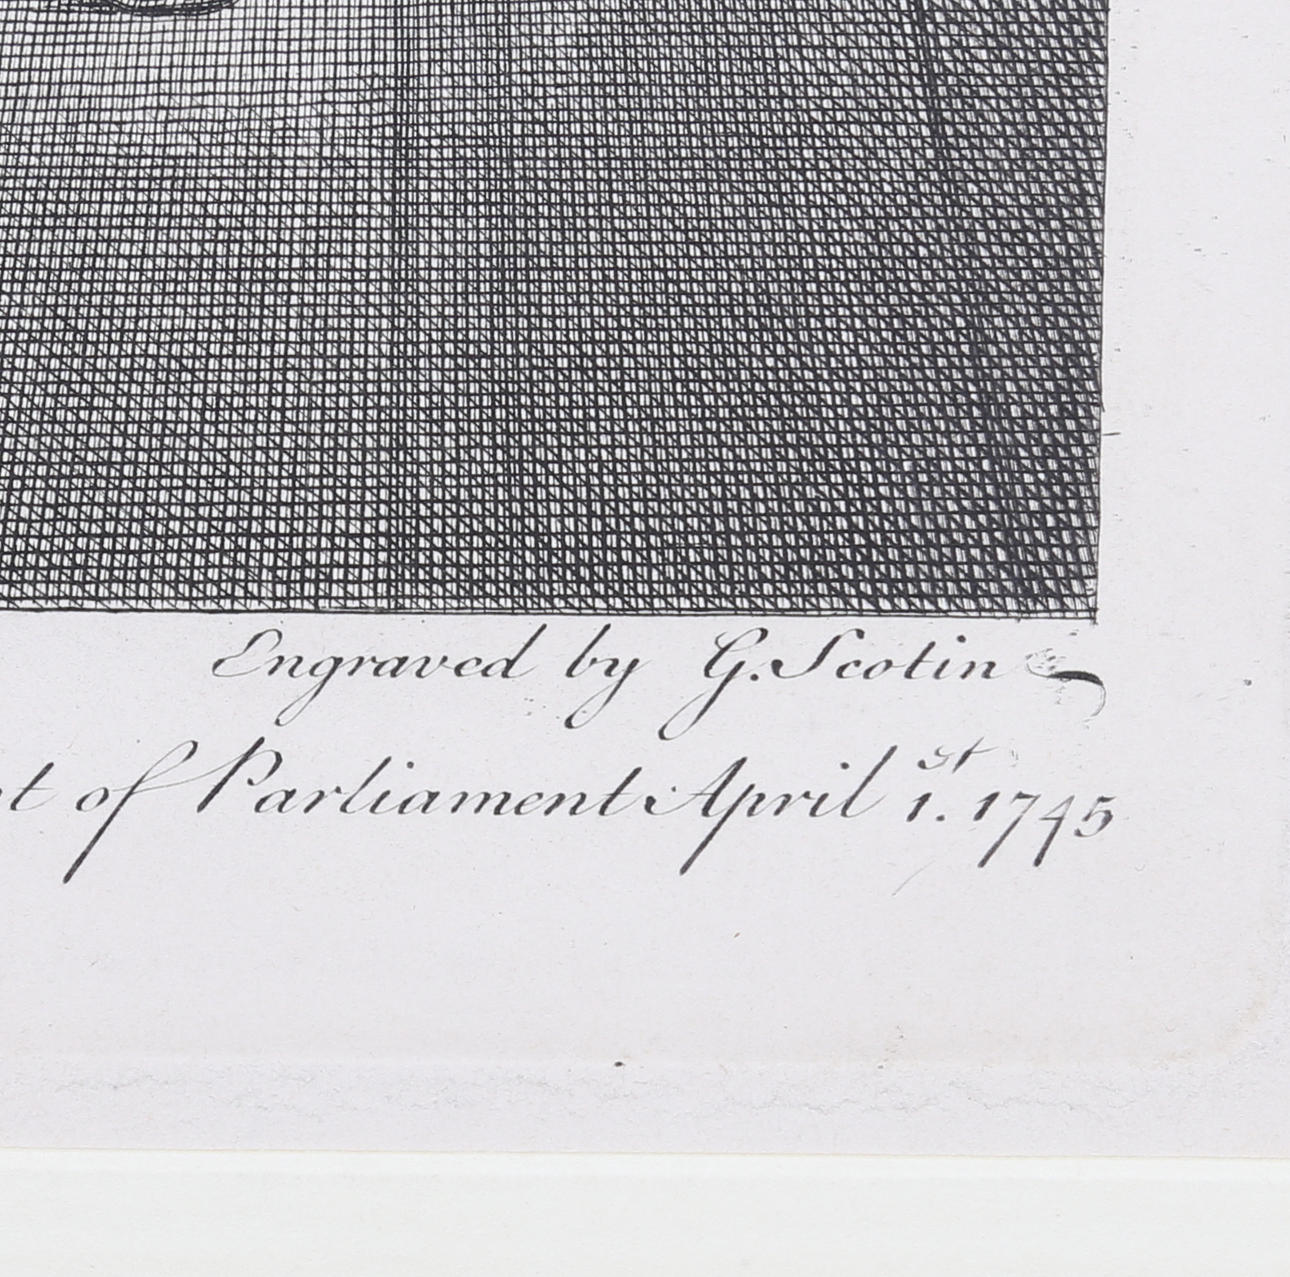 Engraved by G. Scotin
of Parliament April 1.st 1745